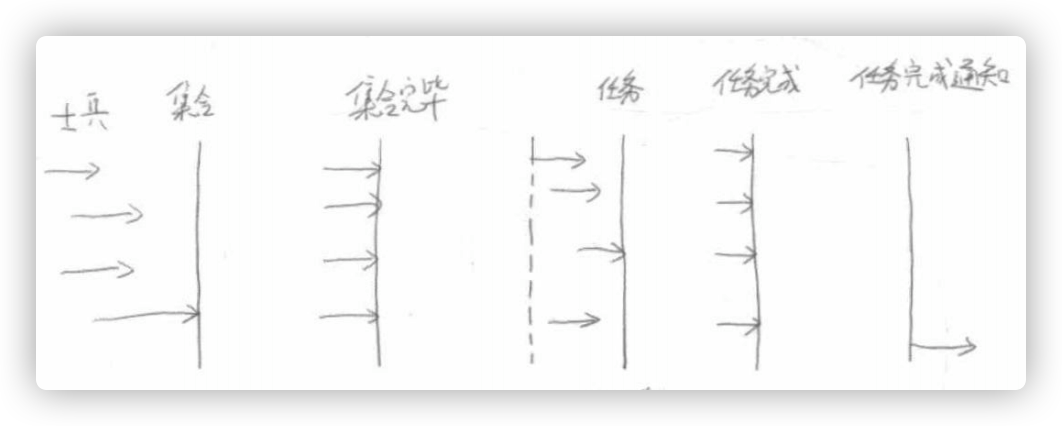 士兵
集合
集合完毕
任务
任务完成
任务完成通知